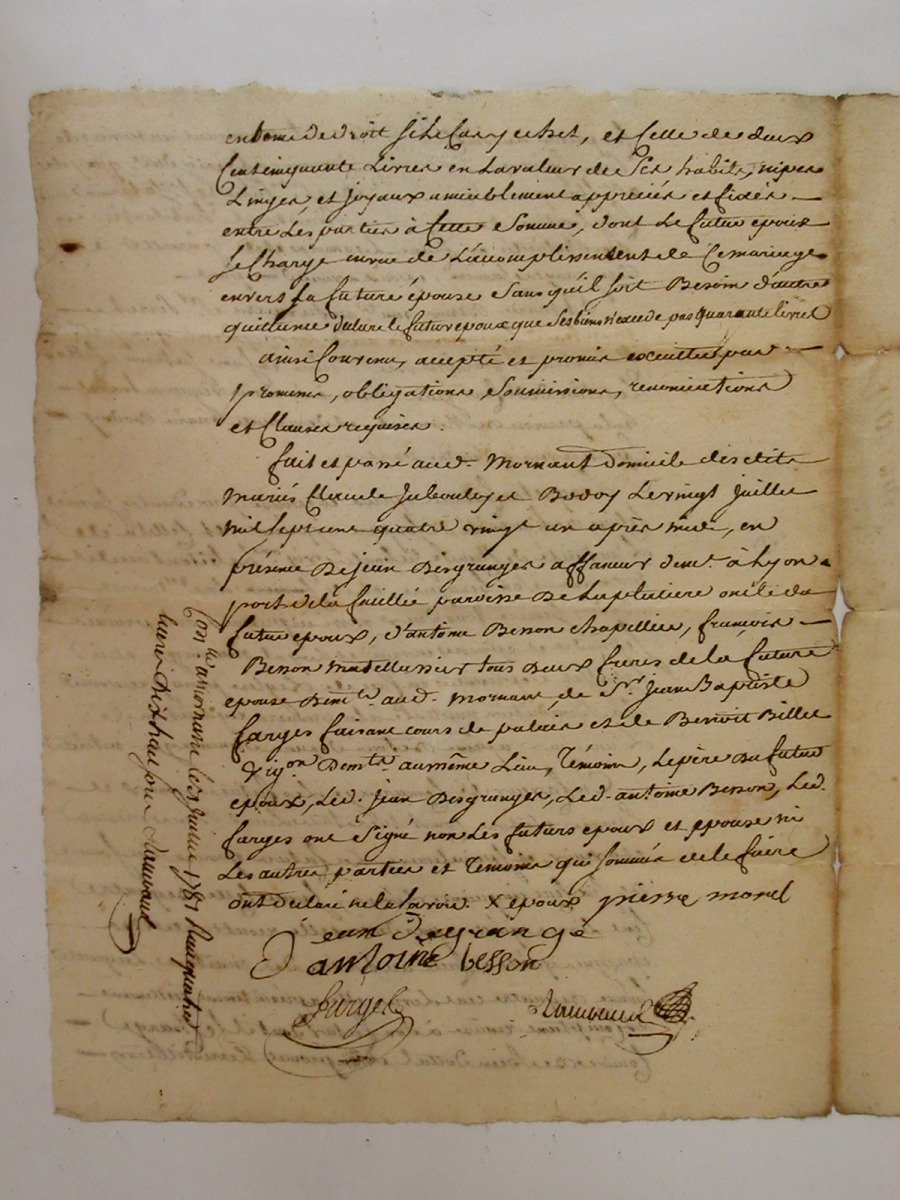 en deme de droit si le cas y echet, et Celle de deux
Cent cinquante Livres en la valeur de ses habits, nipes
Linges, et joyaux amiablement appreciés et fixés
entre les parties à cette somme, dont le futur epoux
se Charge en vue de l'accomplissement de ce mariage
envers sa future épouse sans qu'il soit Besoin d'autre
quittance declare le futur epoux que ses biens n'excede pas quarante livres
ainsi Convenu, accepté et promis executter par
promesses, obligations, soumissions, renonciations
et Clauses requises.
fait et passé aud. Mornant Domicile desdits
mariés Claude Bodoy Le vingt juillet
mil sept cent quatre vingt un après midi, en
présence De jean Desgranges affaneur demt. à Lyon
port de la feuillée paroisse De La platiere oncle du
futur epoux, d'antoine Besson chapellier, françois
Besson tous Deux freres de la future
epouse Demts. aud. Mornant, de Sr. Jean Baptiste
farges faisant cours de palais et de Benoit Billet
vigon. Demts. au même Lieu, Témoins, Le père Du futur
epoux, Led. jean Desgranges, Led. antoine Besson, Led.
farges ont signé non Les futurs epoux et epouse ni
Les autres parties et Temoins qui sommés de le faire
ont declaré ne le savoir. X epoux pierre morel
jean degrange
antoine besson
farges
Con.lé a mornant le 1781